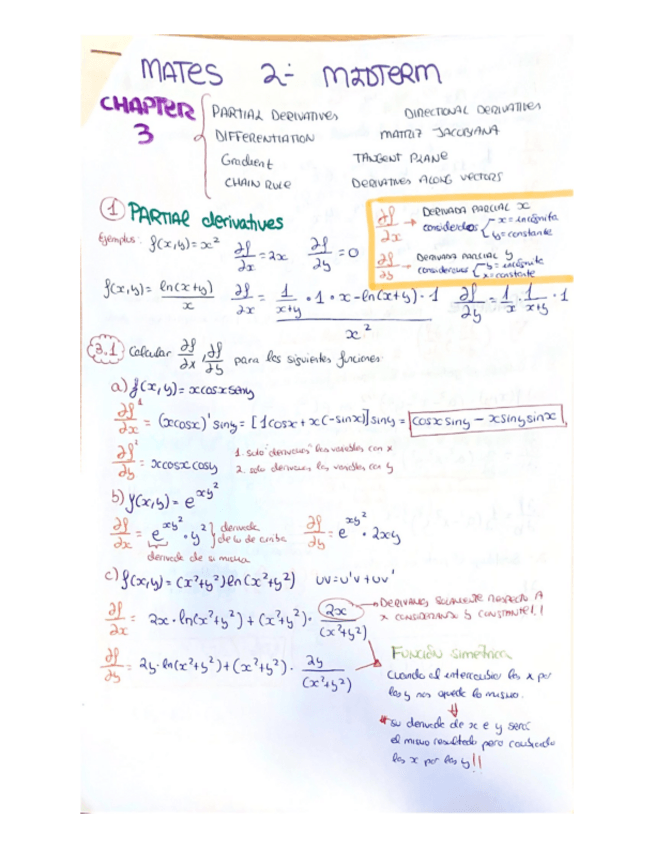 MATES 2 ÷ MIDTERM
CHAPTER 3
PARTIAL DERIVATIVES DIRECTIONAL DERIVATIVES
DIFFERENTIATION MATRIZ JACOBIANA
Gradient TANGENT PLANE
CHAIN RULE DERIVATIVES ALONG VECTORS
① PARTIAL derivatives
∂f/∂x → DERIVADA PARCIAL X consideras { x = incógnita y = constante
∂f/∂y → DERIVADA PARCIAL y consideramos { y = incógnita x = constante
Ejemplos: f(x,y) = x² ∂f/∂x = 2x ∂f/∂y = 0
f(x,y) = ln(x+y)/x ∂f/∂x = (1/(x+y) · 1 · x - ln(x+y) · 1)/x² ∂f/∂y = 1/x · 1/(x+y) · 1
3.1 Calcular ∂f/∂x, ∂f/∂y para los siguientes funciones:
a) f(x,y) = x cosx seny
∂f/∂x ¹ = (xcosx)' siny = [1cosx + x(-sinx)] siny = cosx siny - x siny sinx
∂f/∂y ² = x cosx cosy
1. solo "derivamos" las variables con x
2. solo derivamos las variables con y
b) f(x,y) = e^(xy²)
∂f/∂x = e^(xy²) · y² } derivada de lo de arriba ∂f/∂y = e^(xy²) · 2xy
derivada de si misma
c) f(x,y) = (x²+y²) ln(x²+y²) uv = u'v + uv'
∂f/∂x = 2x · ln(x²+y²) + (x²+y²) · 2x/(x²+y²)
→ DERIVAMOS SOLAMENTE RESPECTO A
x CONSIDERANDO y CONSTANTE!!
∂f/∂y = 2y · ln(x²+y²) + (x²+y²) · 2y/(x²+y²)
FUNCIÓN SIMÉTRICA
Cuando al intercambiar las x por
las y nos quede lo mismo.
⇓
* su derivada de x e y será
el mismo resultado pero cambiando
las x por las y!!